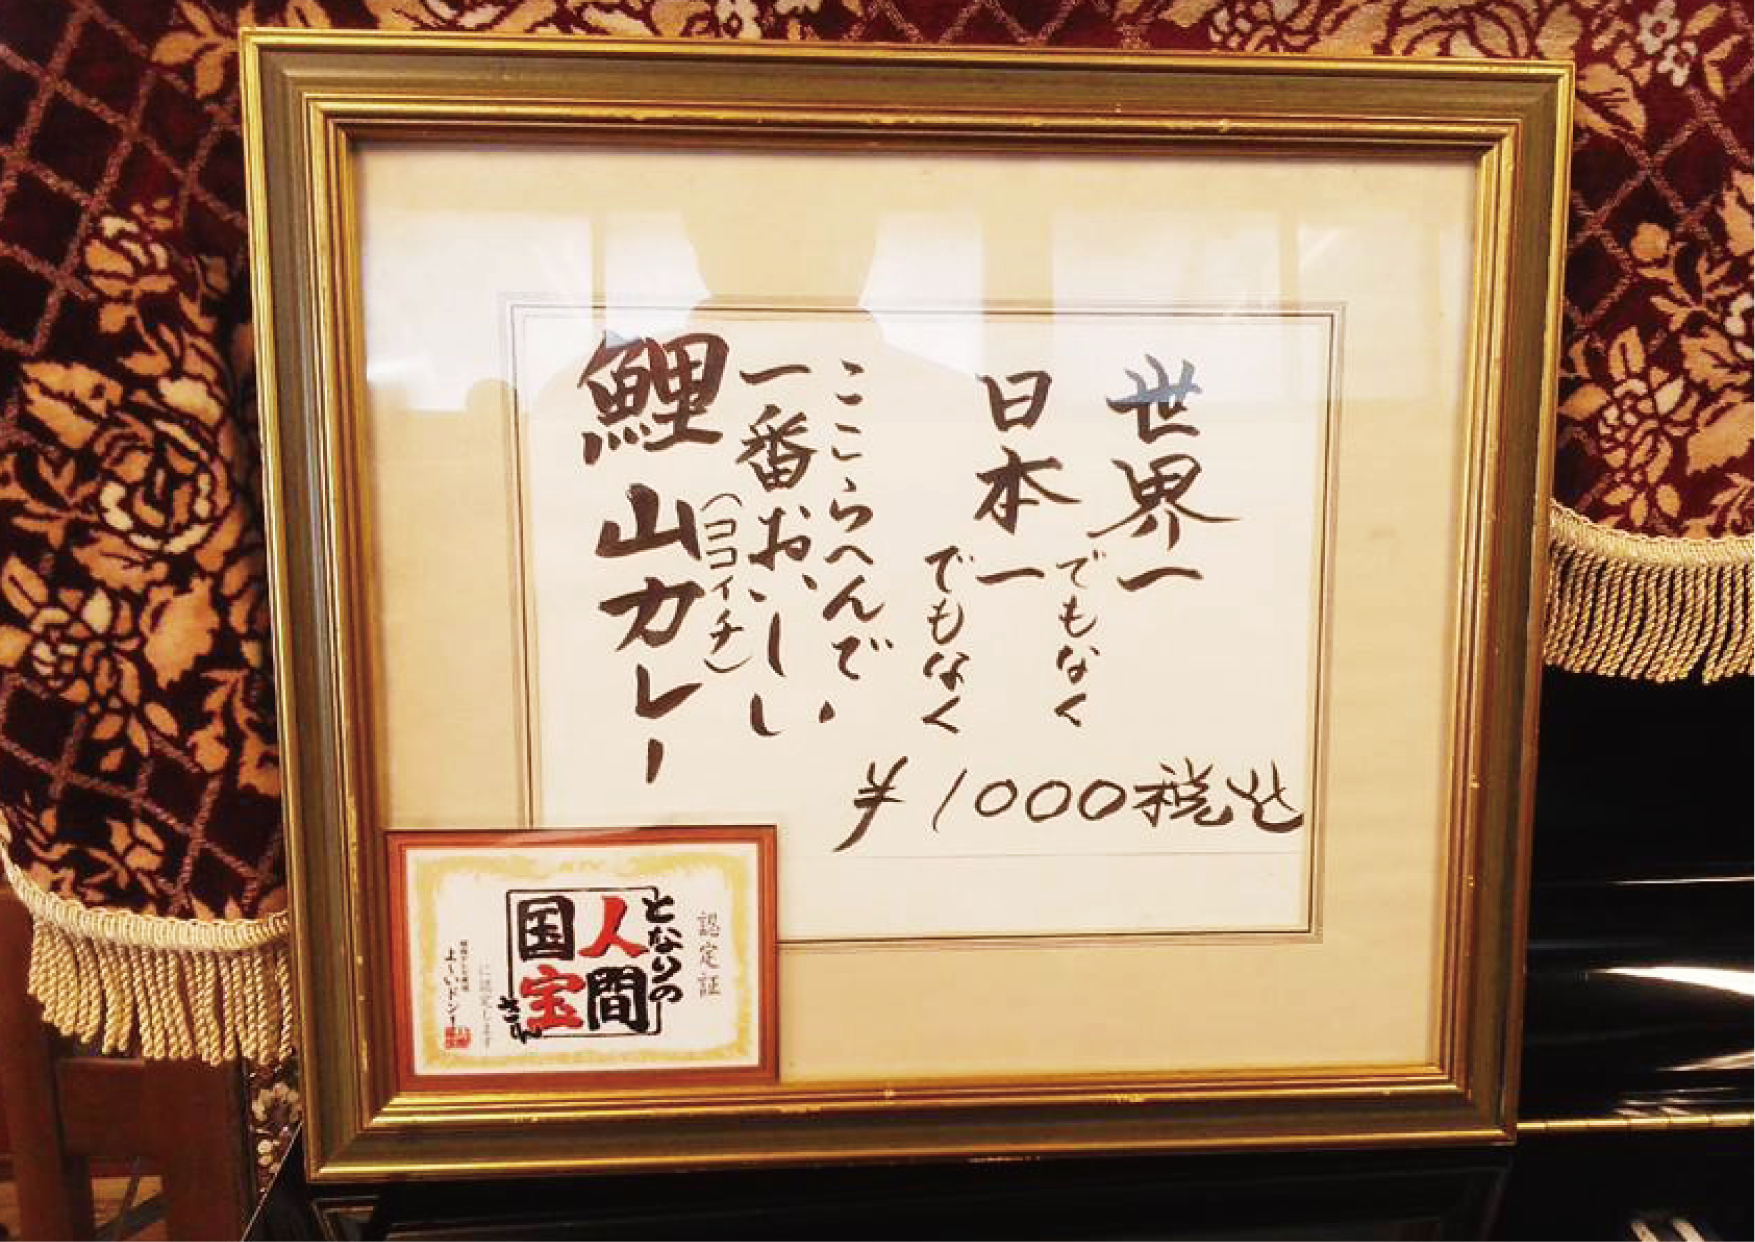 世界一
でもなく
日本一
でもなく
ここらへんで
一番おいしい
(ココイチ)
鯉山カレー
¥1000税込
認定証
となりの
人間
国宝
さん
に認定します
よ〜いドン!